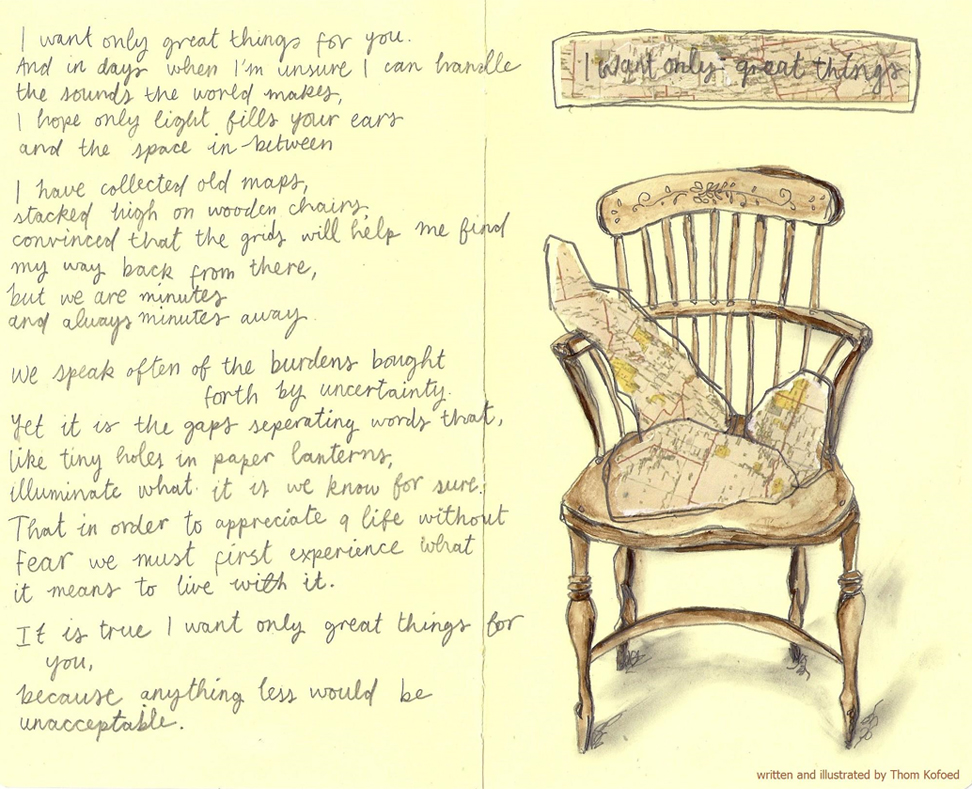 I want only great things for you.
And in days when I'm unsure I can handle
the sounds the world makes,
I hope only light fills your ears
and the space in-between
I have collected old maps,
stacked high on wooden chairs,
convinced that the grids will help me find
my way back from there,
but we are minutes
and always minutes away.
We speak often of the burdens bought
forth by uncertainty.
Yet it is the gaps seperating words that,
like tiny holes in paper lanterns,
illuminate what it is we know for sure.
That in order to appreciate a life without
fear we must first experience what
it means to live with it.
It is true I want only great things for
you,
because anything less would be
unacceptable.
I want only great things
written and illustrated by Thom Kofoed